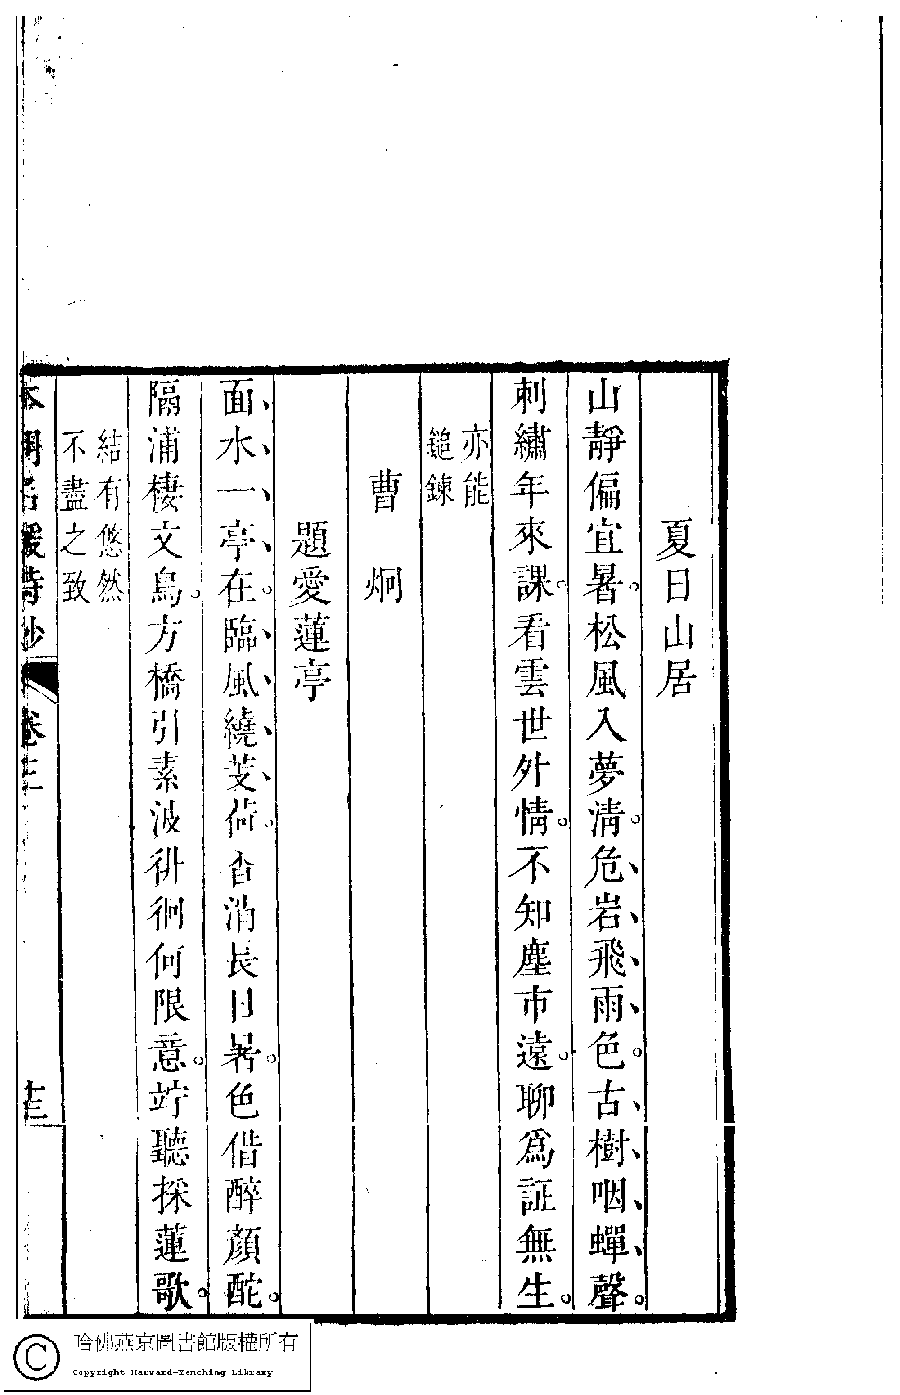 夏日山居
山靜偏宜暑。松風入夢清。危、岩、飛、雨、色。古、樹、咽、蟬、聲。
刺繡年來課。看雲世外情。不知塵市遠。聊為証無生。
亦能
鎚鍊
曹炯
題愛蓮亭
面、水、一、亭、在。臨、風、繞、芰、荷。香消長日暑。色借醉顏酡。
隔浦棲文鳥。方橋引素波。徘徊何限意。竚聽採蓮歌。
結有悠然
不盡之致
本朝名媛詩鈔 卷三 十三
哈佛燕京圖書館版權所有
Copyright Harvard-Yenching Library